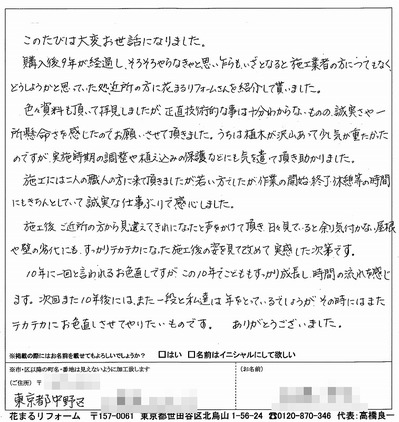 このたびは大変お世話になりました。
購入後9年が経過し、そろそろやらなきゃと思いながらもいざとなると施工業者の方につてもなく、
どうしようかと思っていた処近所の方に花まるリフォームさんを紹介して貰いました。
色々資料も頂いて拝見しましたが、正直技術的な事は十分わからないものの、誠実さや一
所懸命さを感じたのでお願いさせて頂きました。うちは植木が沢山あって少し気が重たかった
のですが、実施時期の調整や植え込みの保護などにも気を遣て頂き助かりました。
施工には二人の職人の方に来て頂きましたが若い方でしたが作業の開始、終了、休憩等の時間
にもきちんとしていて誠実な仕事ぶりで感心しました。
施工後、ご近所の方から見違えてきれいになったと声をかけて頂き、日々見ていると余り気付かない、屋根
や壁の劣化にも、すっかりテカテカになった施工後の姿を見て改めて実感した次第です。
10年に一回と言われるお色直しですが、この10年でこどももすっかり成長し、時間の流れを感じ
ます。次回また10年後には、また一段と私達は年をとっているでしょうが、その時にはまた
テカテカにお色直しさせてやりたいものです。 ありがとうございました。
※掲載の際にはお名前を載せてもよろしいでしょうか? □はい □名前はイニシャルにして欲しい
※市・区以降の町名・番地は見えないように加工致します
(お名前)
〒
東京都中野区
花まるリフォーム 〒157-0061 東京都世田谷区北烏山1-56-24 ☎0120-870-346 代表:高橋良一